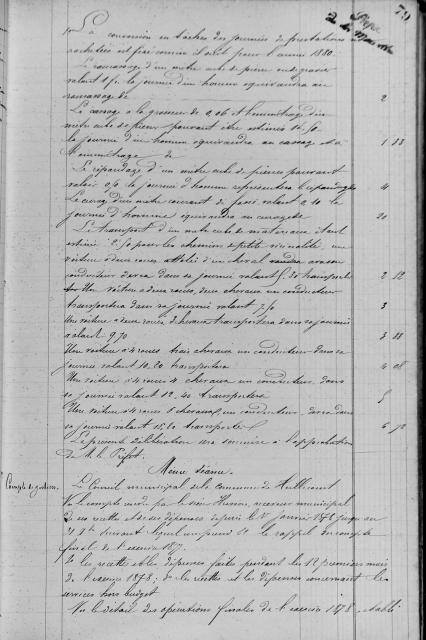 79
La conversion en tâches des journées de prestations
rachetées est fixée comme il suit pour l'année 1880.
Le ramassage d'un mètre cube de pierre ou de gravier
valant la journée d'un homme équivaudra au
ramassage de 2
Le cassage à la grosseur de 0,06 et l'emmétrage d'un
mètre cube de pierre pouvant être estimés
la journée d'un homme équivaudra au cassage et à
l'emmétrage de 1 33
Le répandage d'un mètre cube de pierres pouvant
valoir la journée d'homme représentera le répandage 4
Le curage d'un mètre courant de fossé valant 0 10 la
journée d'homme équivaudra au curage de 20
Le transport d'un mètre cube de matériaux étant
estimé pour les chemins de petite vicinalité, une
voiture à deux roues attelée d'un cheval avec son
conducteur dans sa journée valant transportera 2 12
Une voiture à deux roues, deux chevaux un conducteur
transportera dans sa journée valant 3
Une voiture à deux roues, chevaux transportera dans sa journée
valant 9 70 3 88
Une voiture à 4 roues trois chevaux un conducteur dans sa
journée valant 10.20 transportera 4 08
Une voiture à 4 roues 4 chevaux un conducteur dans
sa journée valant 12.40 transportera
Une voiture à 4 roues 5 chevaux, un conducteur dans
sa journée valant transportera 6
La présente délibération sera soumise à l'approbation
de M. le Préfet.
Même séance.
Compte de gestion
Le Conseil municipal de la commune de
Vu le compte rendu par le sieur Husson, receveur municipal
des recettes et des dépenses depuis le 1er janvier 1878 jusqu'au
suivant lequel comprend 1° le rappel du compte
final de l'exercice 1877
2° les recettes et les dépenses faites pendant les 12 premiers mois
de l'exercice 1878; de les recettes et les dépenses concernant les
services hors budget
Vu le détail des opérations finales de l'exercice 1878, établi